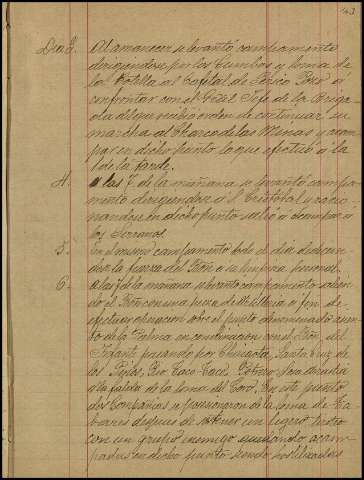 Dia 3. Al amanecer se levantó campamento
dirigiendose por los Tumbos y loma de
la Botella al Cafetal de Perico Pozo á
confrontar con el Gral Jefe de la Briga-
da del que recibió orden de continuar su
marcha al Charco de las Minas y acam-
par en dicho punto lo que efectuó á la
1 de la tarde.
4. á las 7 de la mañana se levantó campa-
mento dirigiendose a S. Cristobal y racio-
nandose en dicho punto salió a acampar á
los Serranos.
5. En el mismo campamento todo el dia dedican-
dose la fuerza del Bon a su limpieza personal.
6. a las 7 de la mañana se levantó campamento salien-
do el Bon con una pieza de Artilleria a fin de
efectuar operacion sobre el punto denominado asien-
to de la Palma en combinacion con el Bon del
Infante pasando por Santa Cruz de
los Pinos,
la falda de la loma del Toro. En este punto
dos Compañias se posesionaron de la loma de Ta-
bares despues de sostener un ligero tiroteo
con un grupo enemigo quedando acam-
pados en dicho punto siendo hostilizados